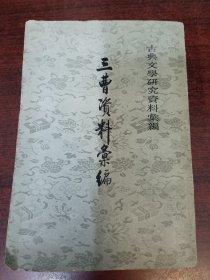 古典文學研究資料彙編
三曹资料彙编